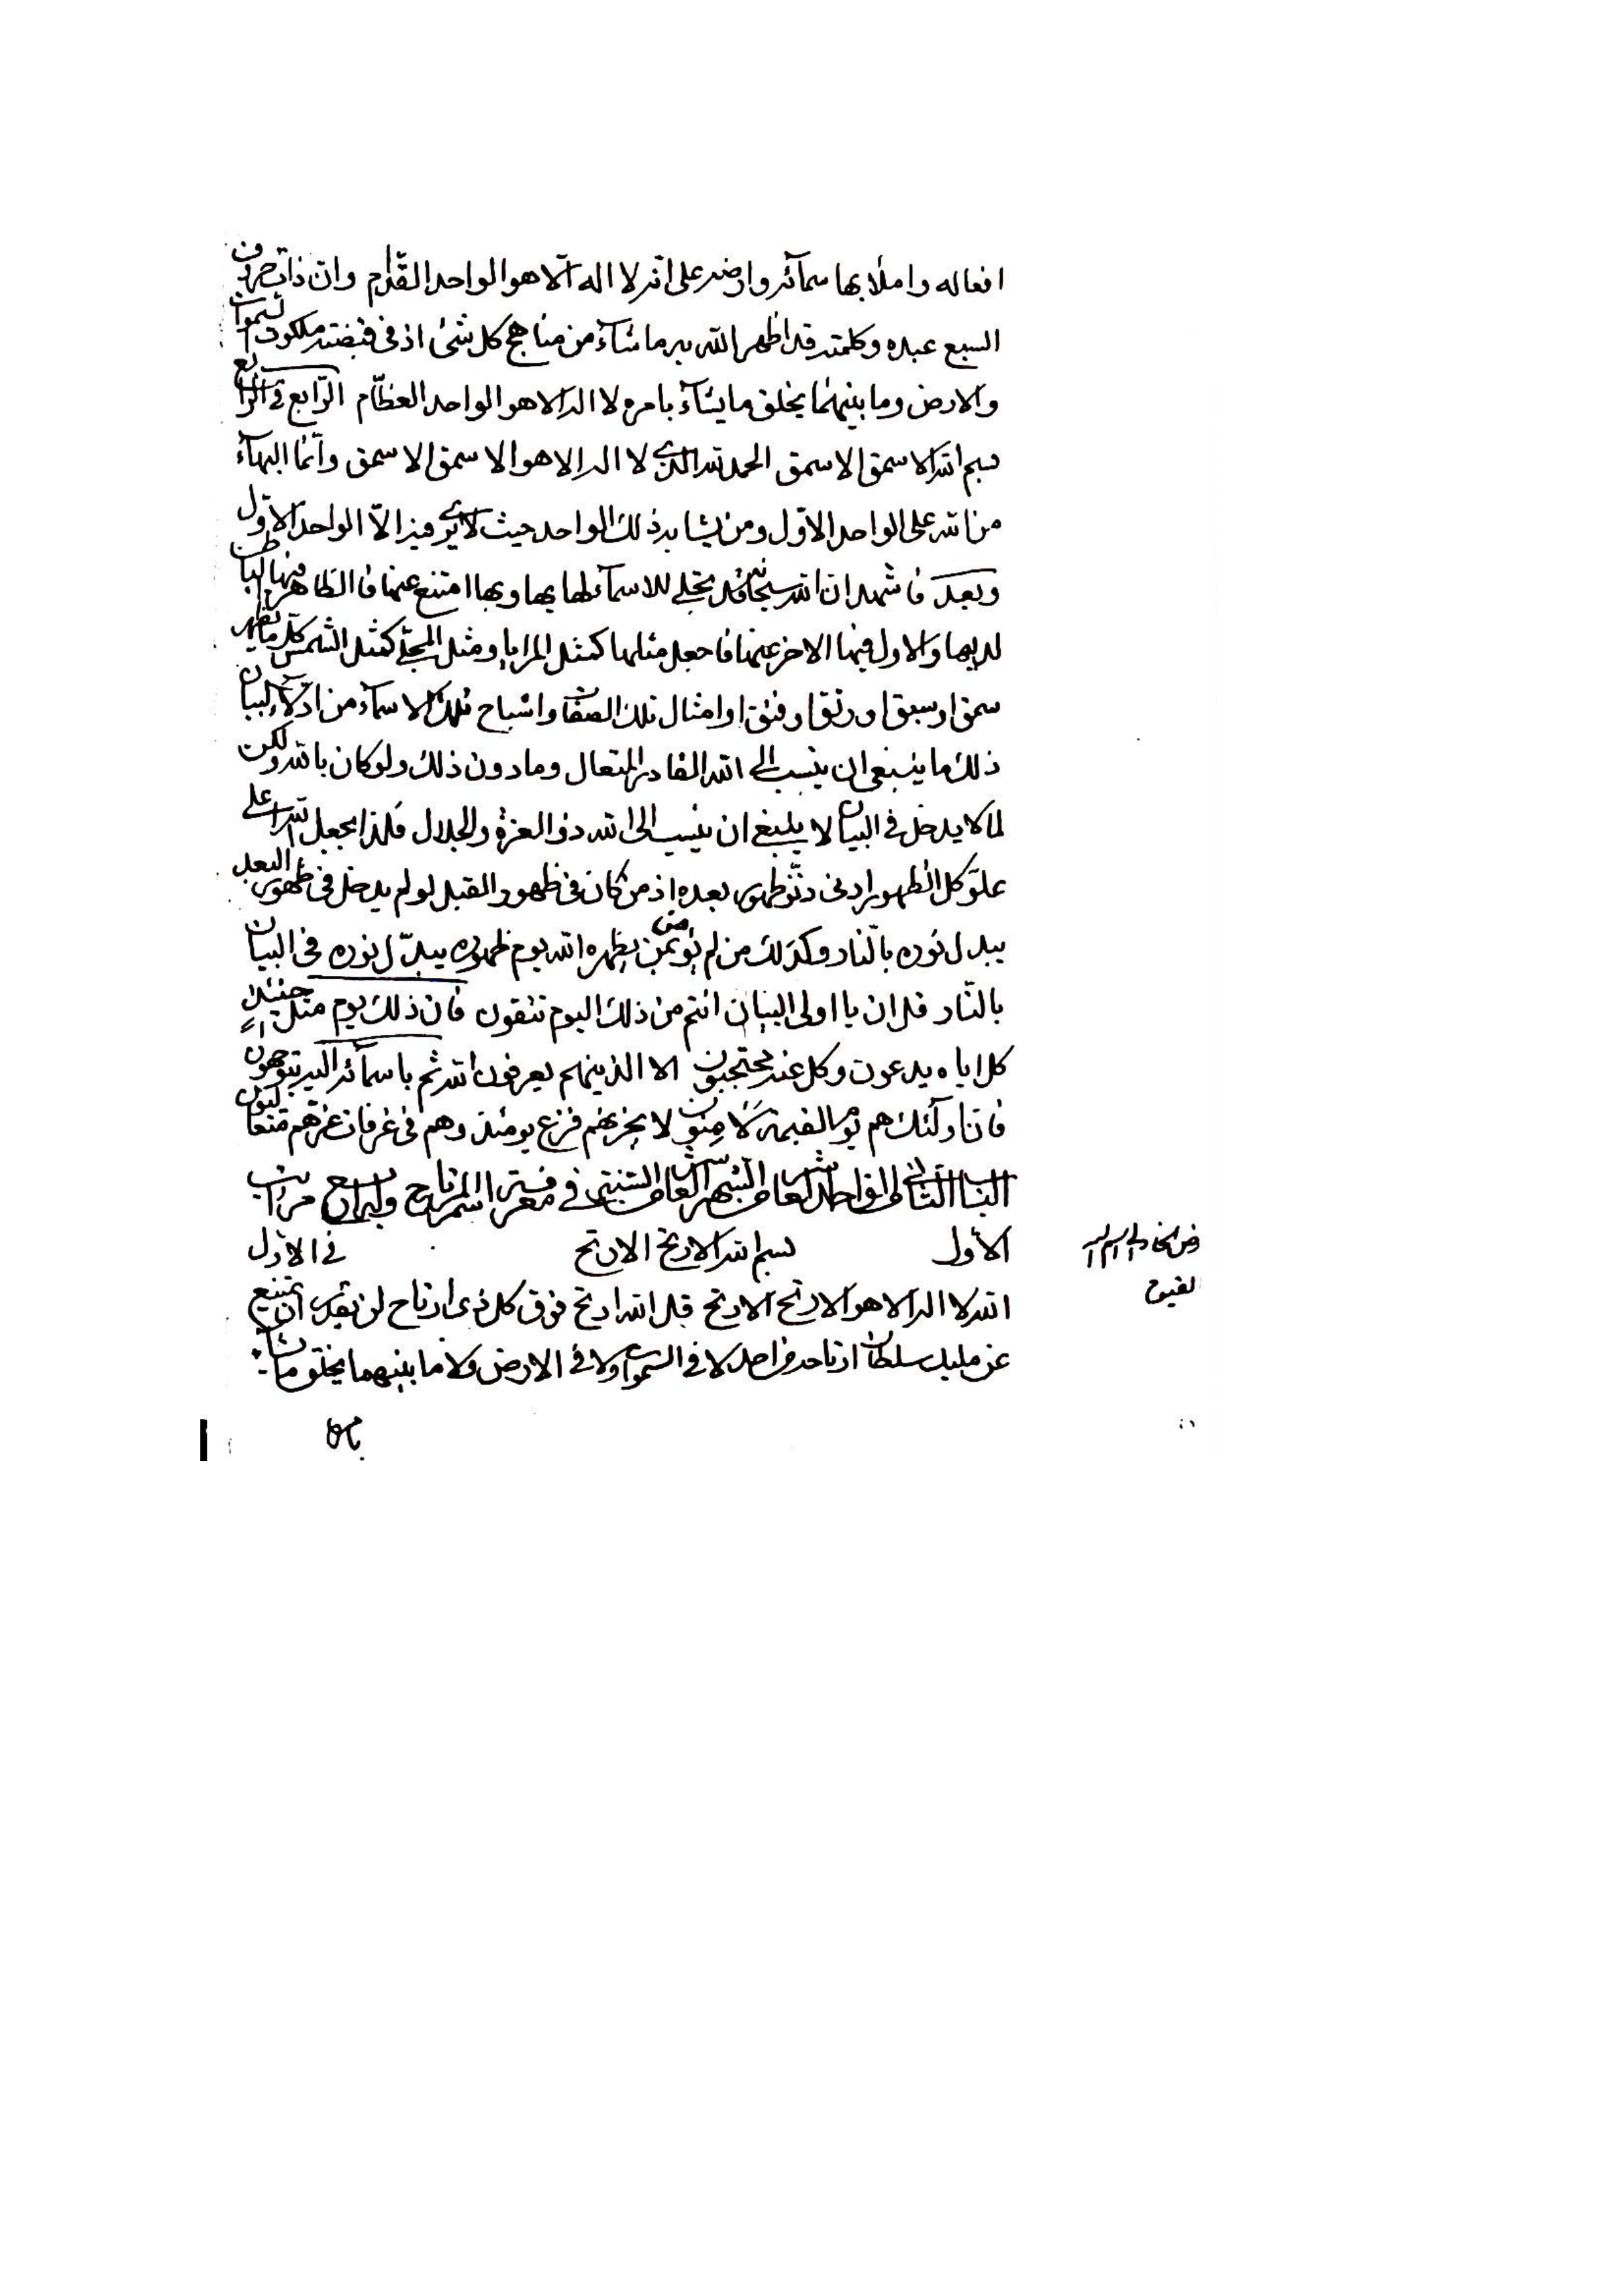 افعاله واملأ بها سمآئه وارضه على انه لا اله الّا هو الواحد القدّام وان ذات حروف
السبع عبده وكلمته قد اظهر الله به ما شآء من مناهج كل شئ اذ فى قبضته ملكوت السموات
والارض وما بينهما يخلق ما يشآء بامره لا اله الا هو الواحد العظّام الرّابع في الرّابع
بسم الله الاسمق الاسمق الحمد لله الذى لا اله الا هو الاسمق الاسمق وانّما البهآء
من الله على الواحد الاوّل ومن يشابه ذلك الواحد حيث لا يرى فيه الّا الواحد الاوّل
وبعد فاشهد ان الله سبحانه قد تجلى للاسمآء لها بها وبها امتنع عنها فالظاهر فيها الباطن
لديها والاول فيها الاخر عنها فاجعل مثلها كمثل المرايا ومثل المجلّى كمثل الشمس كلّما يظهر
سمق او سبق او رتق او فتق او امثال تلك الصفات واشباح تلك الاسمآء من ادلّآء البيان
ذلك ما ينبغى ان ينسب الى الله القادر المتعال وما دون ذلك ولو كان بالله ولكن
لما لا يدخل فى البيان لا ينبغى ان ينسب الى الله ذو العزة والجلال فلذا يجعل الله اعلى
علوّ كل ظهور ادنى دنوّ ظهور بعده اذ من كان فى ظهور القبل لو لم يدخل فى ظهور البعد
يبدل نوره بالنّار وكذلك من لم يؤمن بمن يظهره الله يوم ظهوره يبدّل نوره فى البيان
بالنّار قل ان يا اولى البيان انتم من ذلك اليوم تتقون فان ذلك يوم مثل حينئذ
كل اياه يدعون وكل عنه محتجبون الا الذينهم يعرفون الله ثم باسمآئه اليه يتوجهون
فان اولئك هم يوم القيمة لامنون لا يحزنهم فزع يومئذ وهم فى غرفات عزّهم متعالون
الباب الثانى من الواحد العاشر من الشهر العاشر من السنة فى معرفة اسم المرتاح وله اربع مراتب
الأول بسم الله الارتح الارتح في الاوّل
الله لا اله الا هو الارتح الارتح قل الله ارتح فوق كل ذى ارتاح لن يقدر ان يمتنع
عن مليك سلطان ارتاحه من احد لا فى السموات ولا فى الارض ولا ما بينهما يخلق ما يشآء